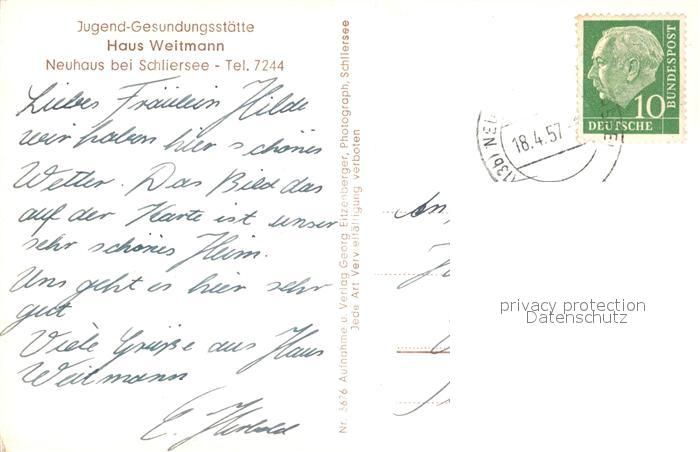 Jugend-Gesundungsstätte
Haus Weitmann
Neuhaus bei Schliersee - Tel. 7244
Liebes Fräulein Hilde
wir haben hier schönes
Wetter. Das Bild das
auf der Karte ist unser
sehr schönes Heim.
Uns geht es hier sehr
gut
Viele Grüße aus Haus
Weitmann
E.
Nr. 3676 Aufnahme u. Verlag Georg Eitzenberger, Photograph, Schliersee
Jede Art Vervielfältigung verboten
10
DEUTSCHE
BUNDESPOST
(13b) NEU
18.4.57
An
privacy protection
Datenschutz